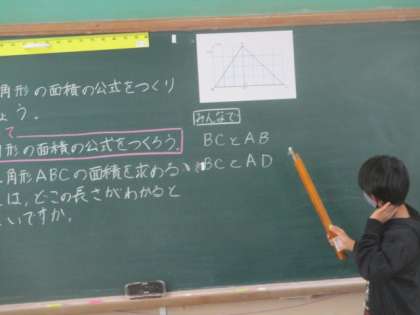 角形の面積の公式をつくり
ょう。
て
形の面積の公式をつくろう。
角形ABCの面積を求める
は、どこの長さがわかると
いですか。
みんなで
BCとAB
BCとAD